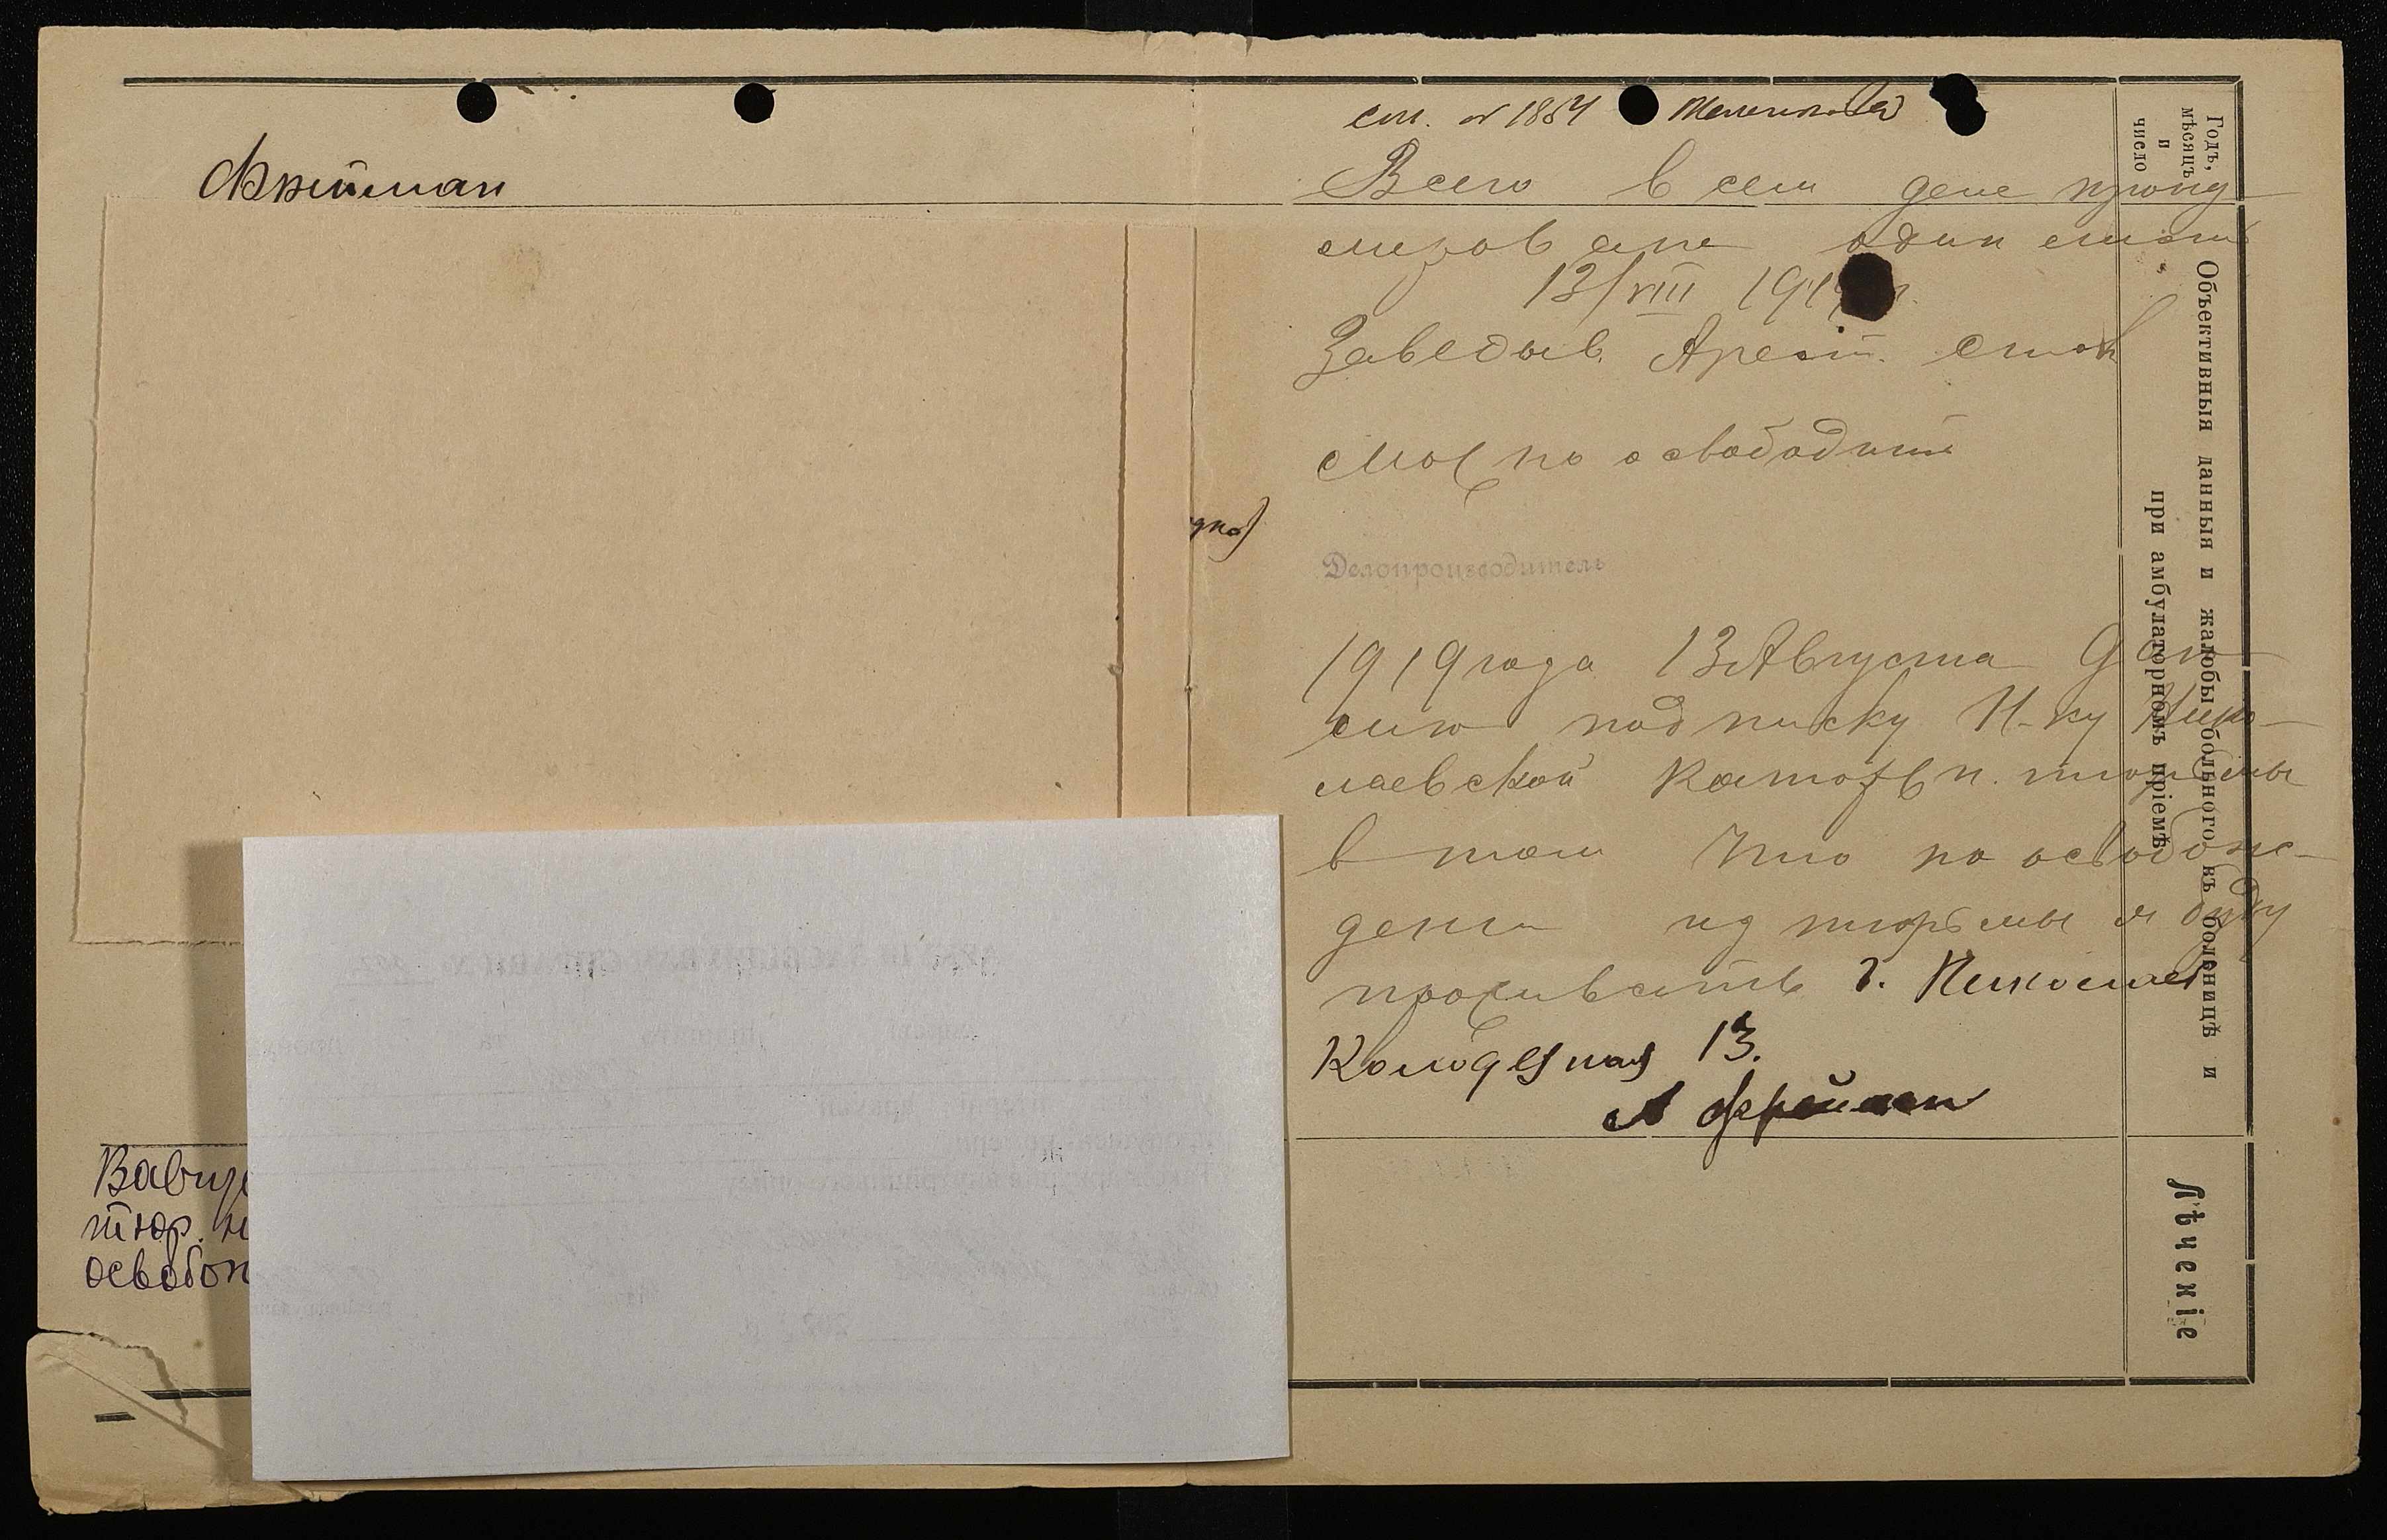 Фрейман
ст. № 1854
Всего в сем деле прону
мерован один лист
13/VIII 1919 г.
Заведыв. Арест. стол
Можно освободить
Делопроизводитель
1919 года 13 Августа Дан
сию подписку Н-ку Нико-
лаевской Каторжн. тюрьмы
в том что по освобож-
дении из тюрьмы я буду
проживать г. Николаев
Колодезная 13.
А Фрейман
тюр.
Годъ,
мѣсяцъ
и
число
Объективныя данныя и жалобы больного въ больницѣ и
при амбулаторномъ пріемѣ
Лѣченіе